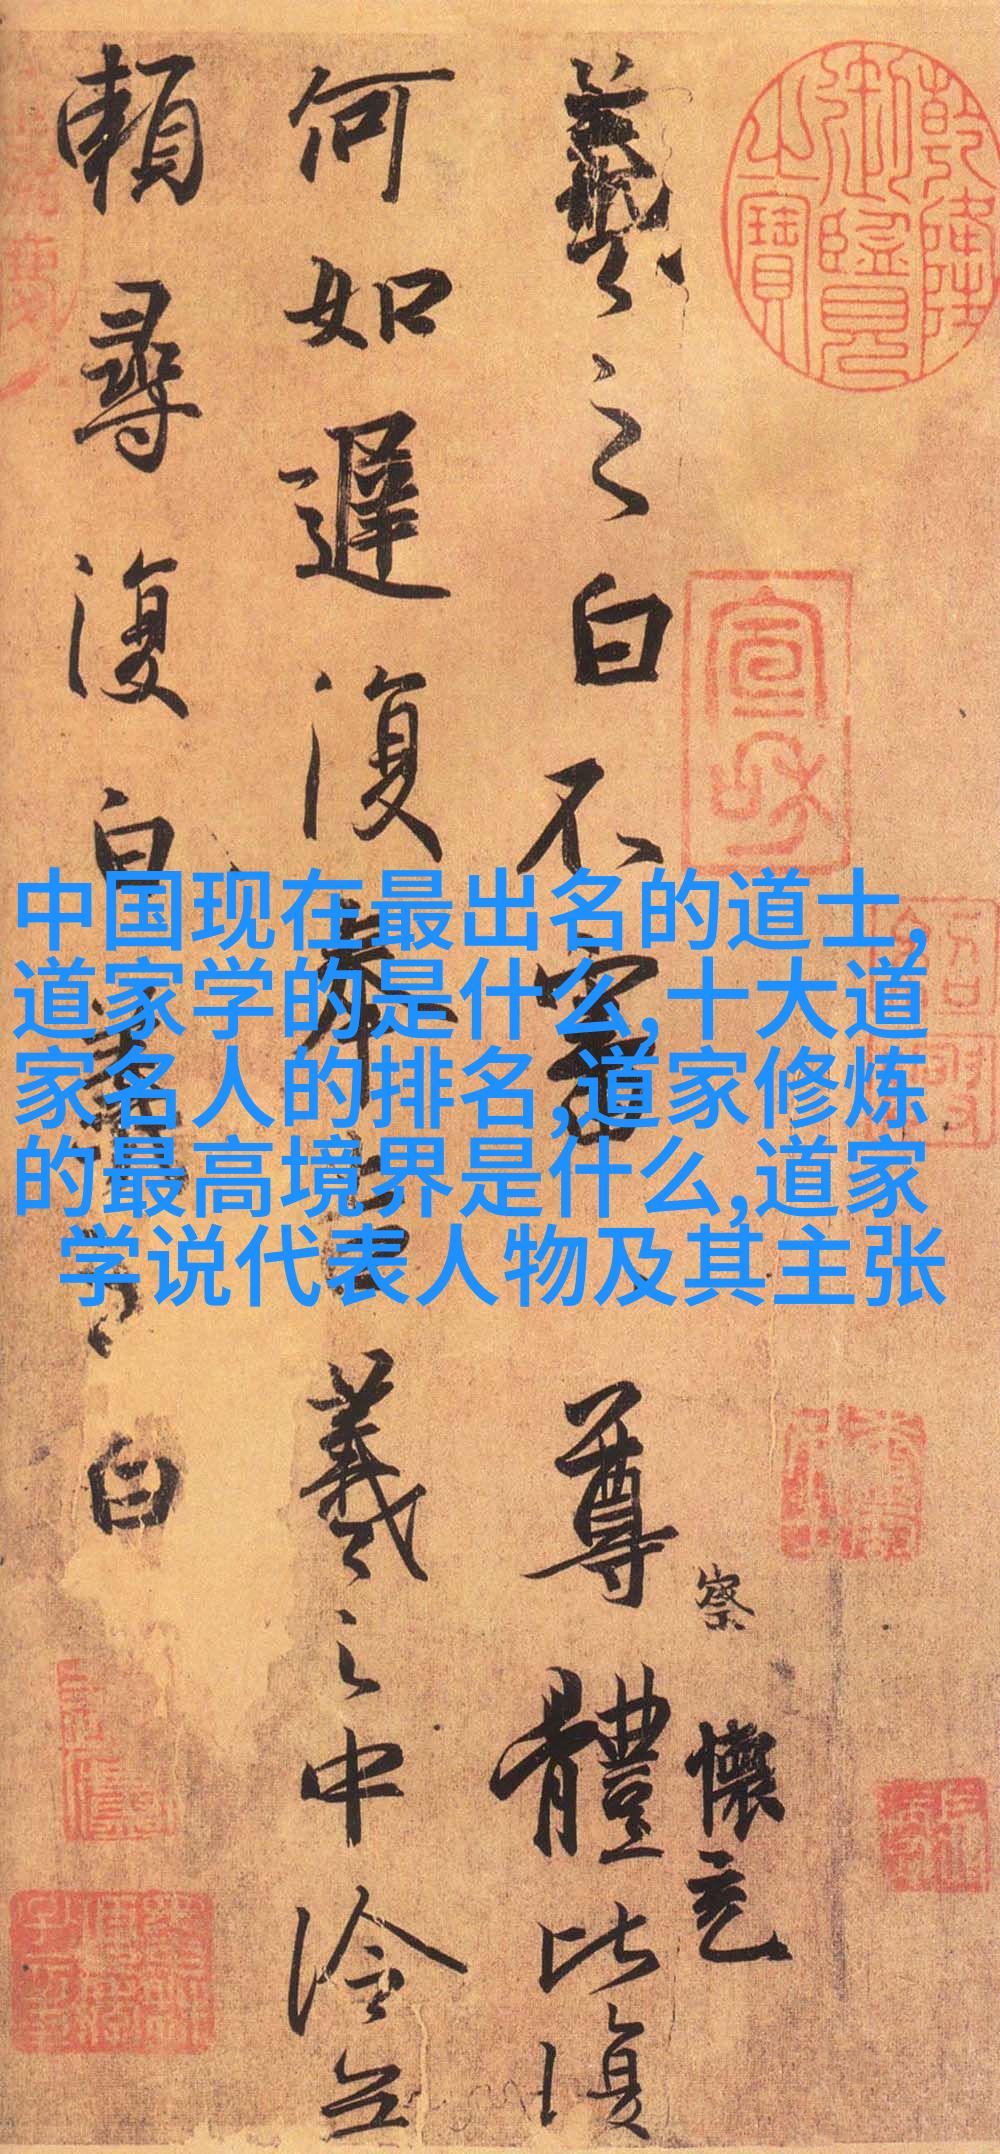 乾隆御覽之寶
宣和
察
懷充
羲之白不審尊體比復
何如遲復奉告羲之中冷無
賴尋復白羲之白
中国现在最出名的道士,
道家学的是什么,十大道
家名人的排名,道家修炼
的最高境界是什么,道家
学说代表人物及其主张